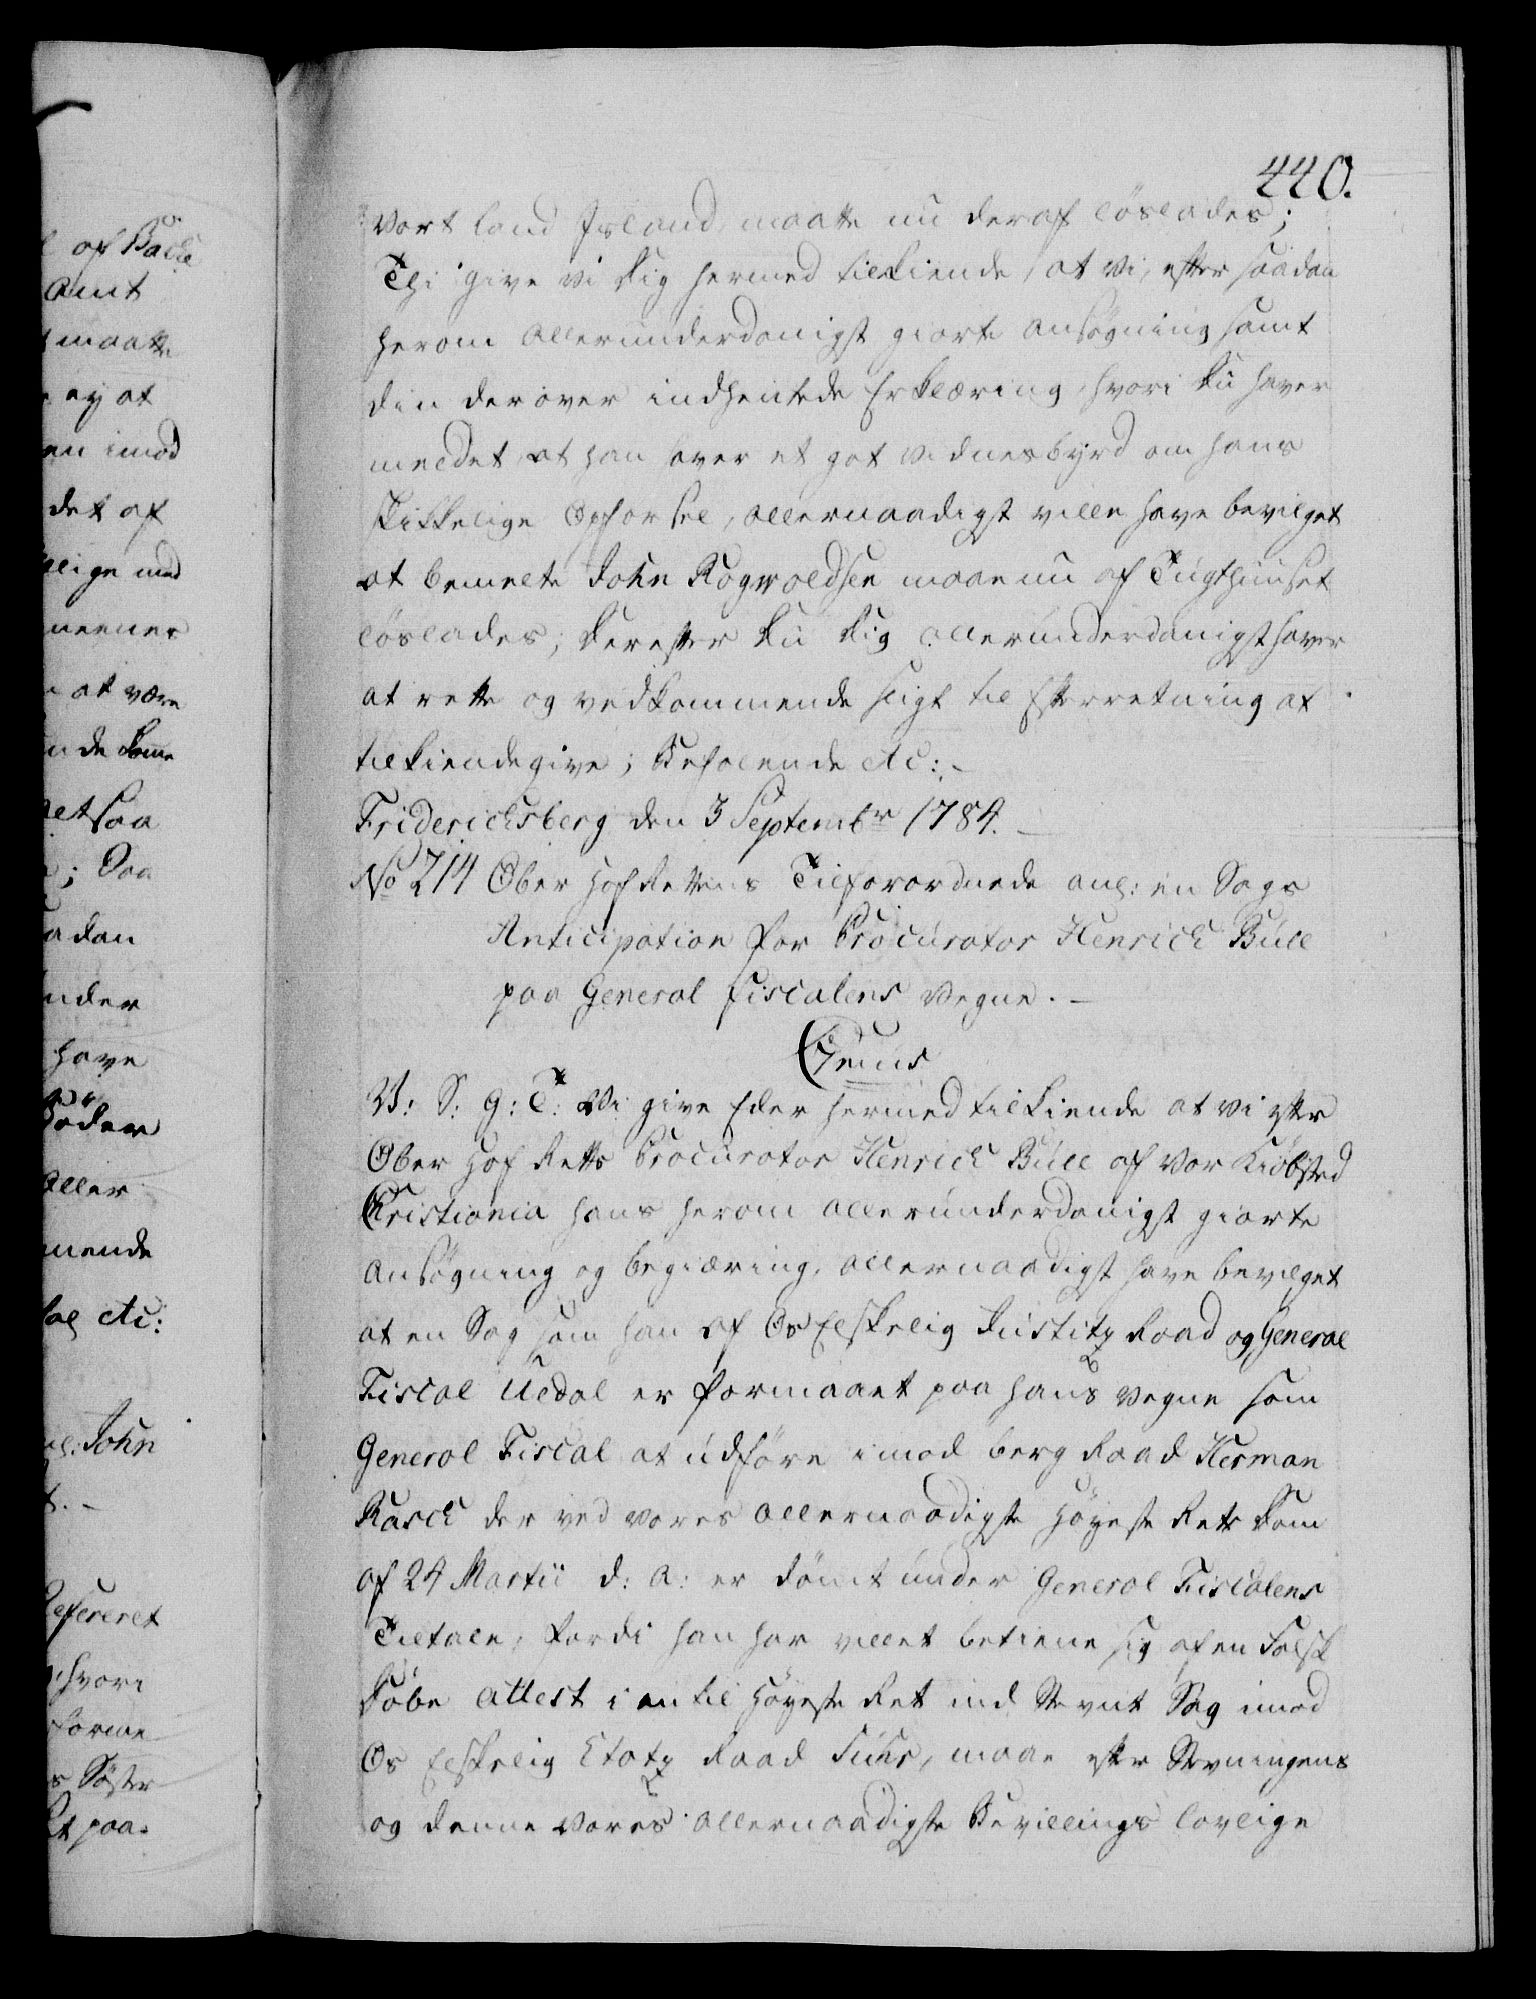 440.
vort land Island, maatte nu deraf löslades;
Thi give vi dig hermed tilkiende, at vi, efter saadan
herom allerunderdanigst giorte ansögning samt
din derover indhentede Erklæring, hvori du haver
meldet, at han haver et got vidnesbyrd om hans
skikkelige Opförsel, allernaadigst ville have bevilget
at bemelte John Rognvoldsen maae nu af Tugthuuset
löslades; Derefter du dig allerunderdanigst haver
at rette og vedkommende sligt til Efterretning at
tilkiendegive; Befalende etc:
Friderichsberg den 3 Septembr 1784.
No 214 Ober Hof Rettens Tilforordnede anl: en Sags
Anticipation for Procurator Henrich Bull
paa General Fiscalens vegne.
C 7mus
V: S: g: T: Vi give Eder hermed tilkiende at vi efter
Ober Hof Retts Procurator Henrich Bull af vor Kiöbsted
Christiania hans herom allerunderdanigst giorte
ansögning og begiæring, allernaadigst have bevilget
at en Sag som han af Os Elskelig Justitz Raad og General
Fiscal Uldal er formaaet paa hans vegne som
General Fiscal at udföre imod berg Raad Herman
Rasch der ved vores allernaadigste Höyeste Rets Dom
af 24 Martii d: a: er dömt under General Fiscalens
Tiltale, fordi han har villet betiene sig af en falsk
Döbe attest i en til Höyeste Ret ind Stevnt Sag imod
Os Elskelig Etatz Raad Suhr, maae efter Stevningens
og denne vores allernaadigste Bevillings lovlige
l af Backe
amt
maatte
ey at
en imod
det af
lige med
meenes
at være
nde komme
et saa
; Daa
adan
nder
have
öder
aller
mende
al etc:
nl: John
t.
Refereret
hvori
forme
s Söster
et paa